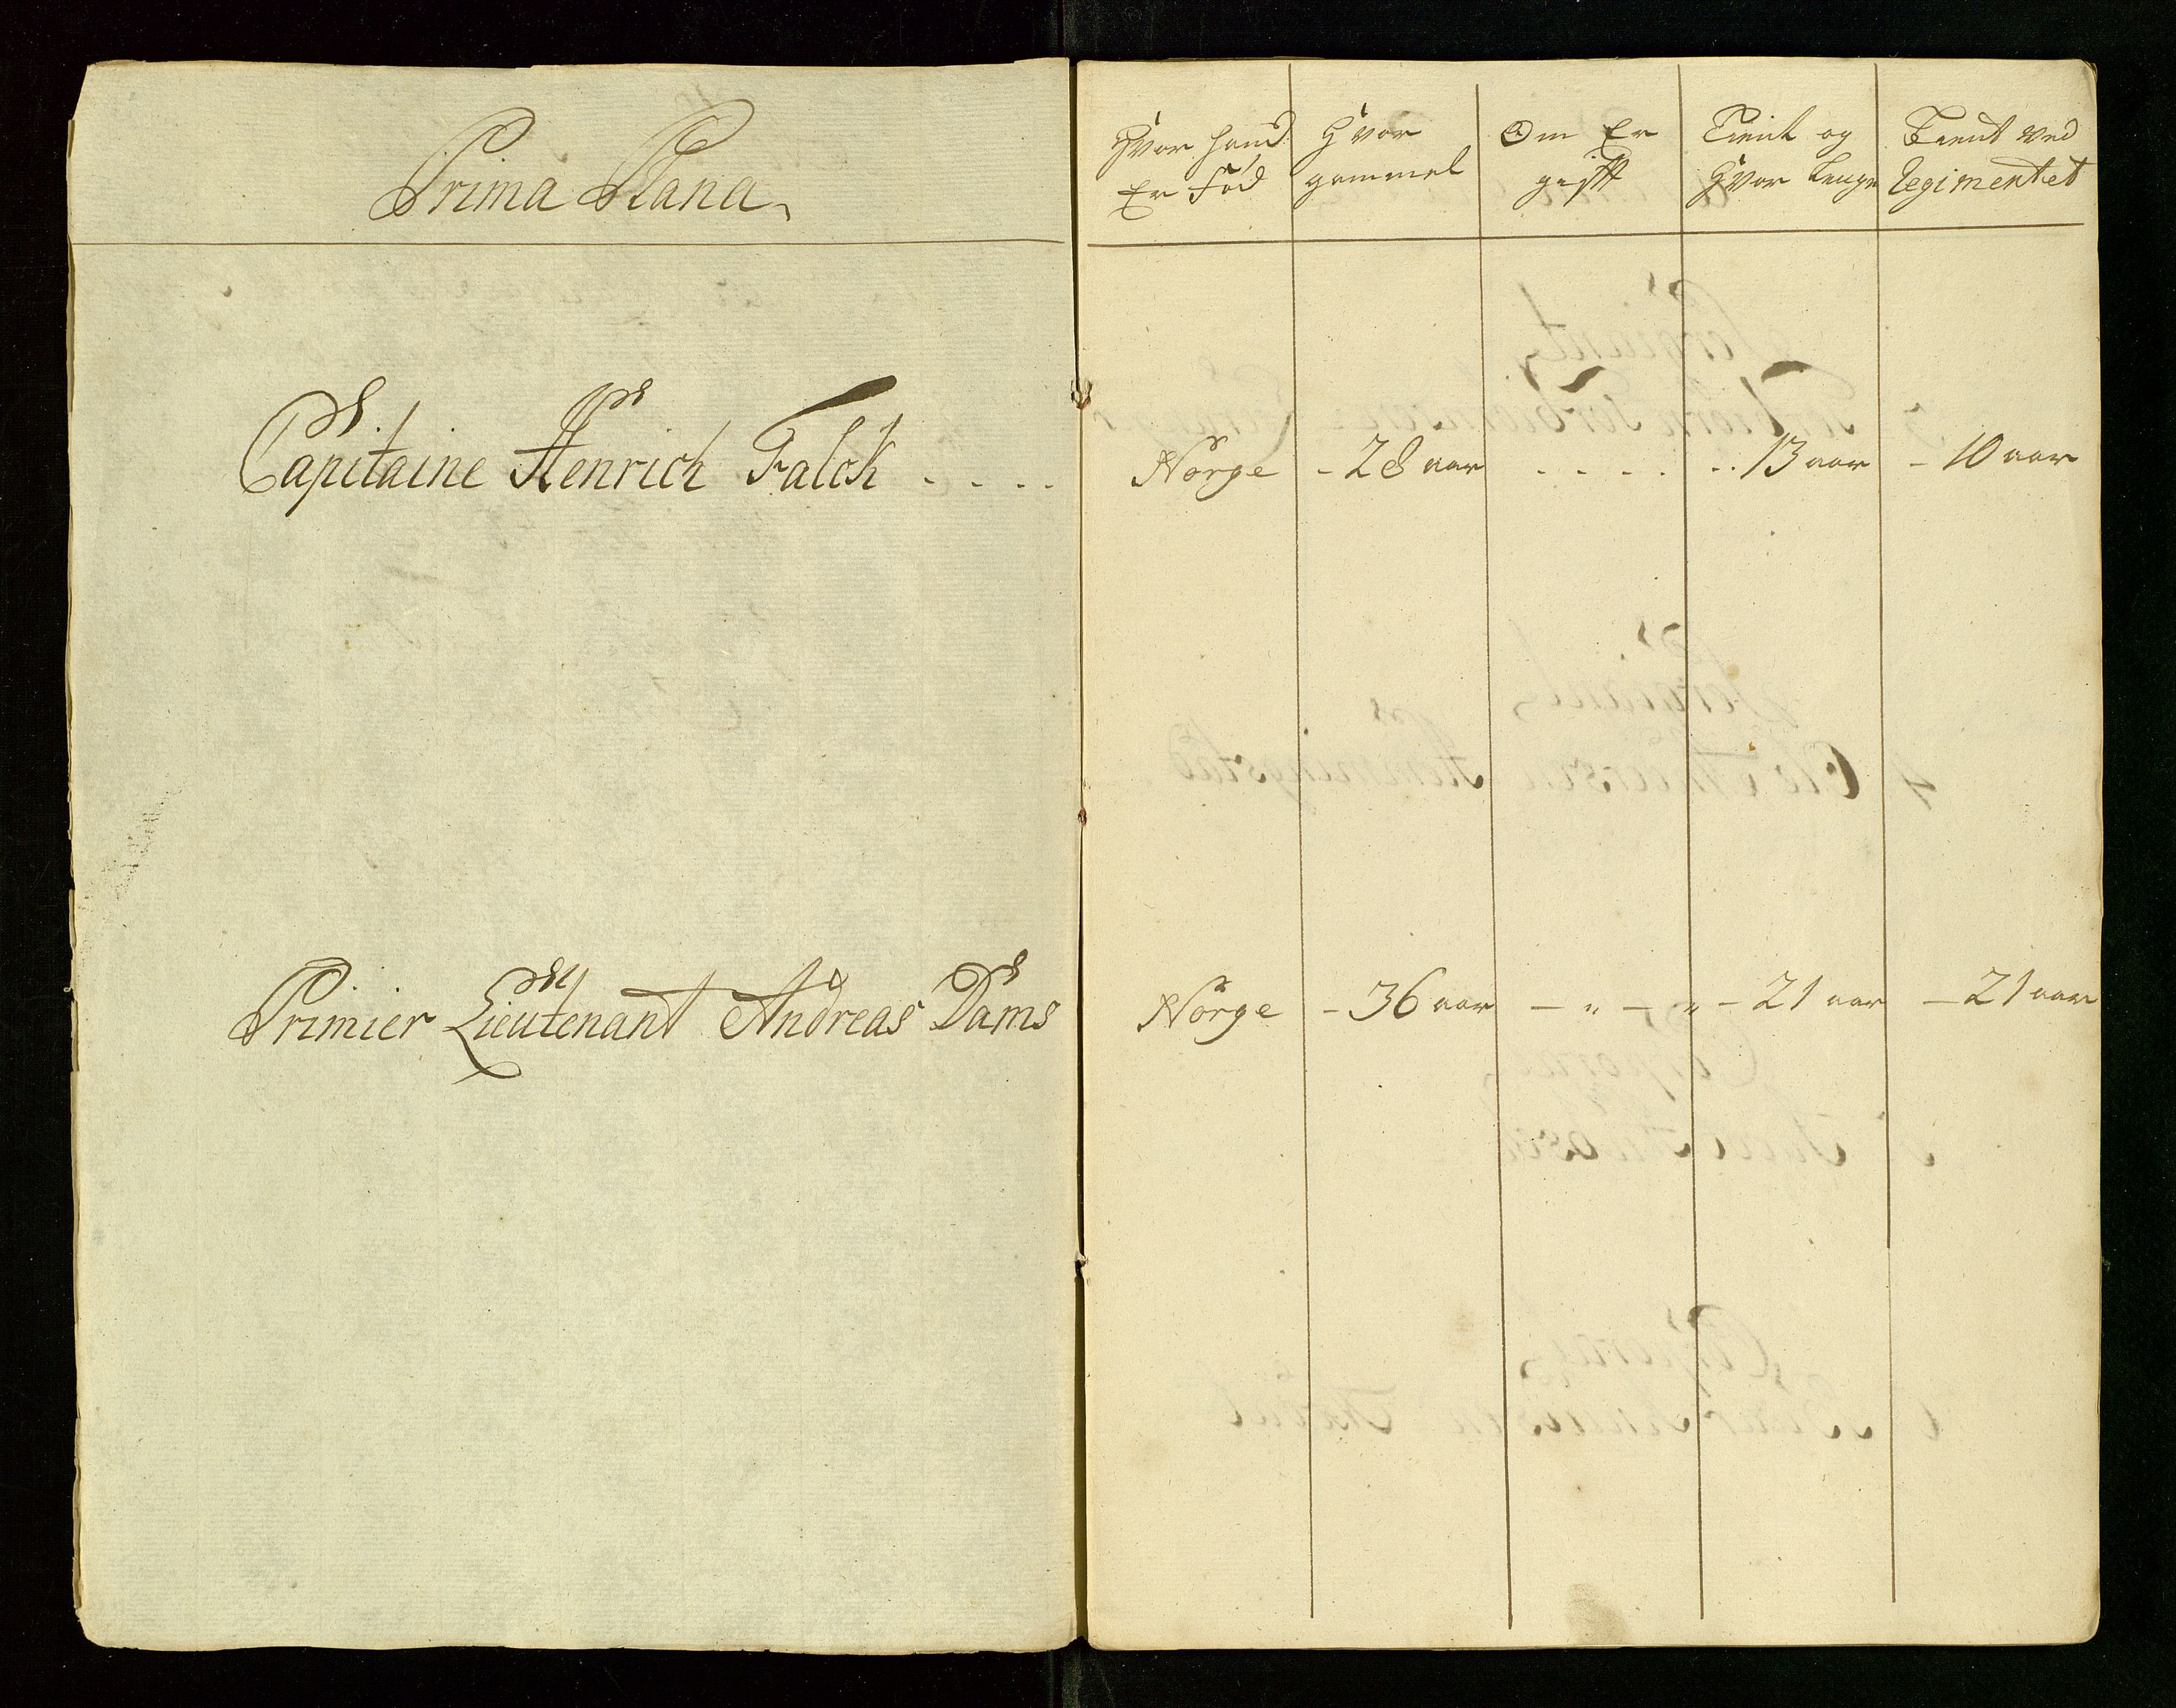 Prima Plana,
Hvor hand Er Fød
Hvor gammel
Om Er gift
Tient og Hvor lenge
Tient ved Regimentet
Capitaine Henrich Falch . . . . Norge - 28 aar . . . . . . 13 aar - 10 aar
Primier Lieutenant Andreas Dams Norge - 36 aar — " — " - 21 aar — 21 aar